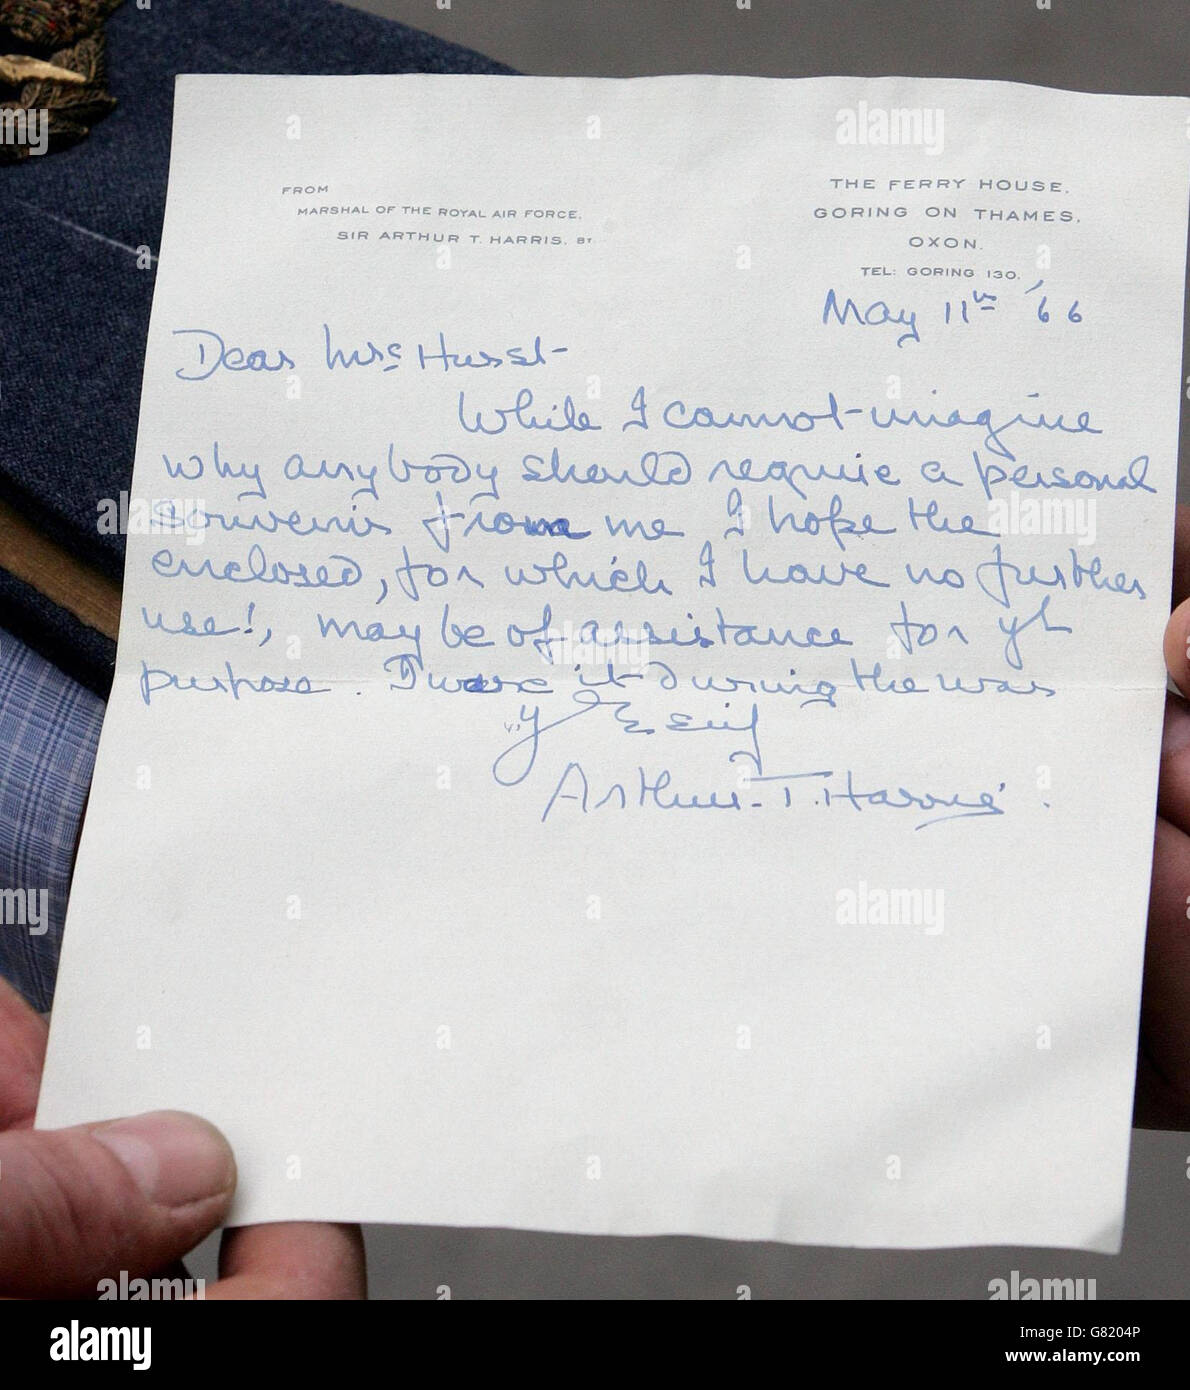 FROM
MARSHAL OF THE ROYAL AIR FORCE,
SIR ARTHUR T. HARRIS. BT.
THE FERRY HOUSE,
GORING ON THAMES,
OXON.
TEL: GORING 130.
May 11th '66
Dear Mrs Hurst-
While I cannot imagine
why anybody should require a personal
souvenir from me I hope the
enclosed, for which I have no further
use!, may be of assistance for yr
purpose. I wore it during the war
Arthur T. Harris.
alamy
alamy
Image ID: G8204P
www.alamy.com